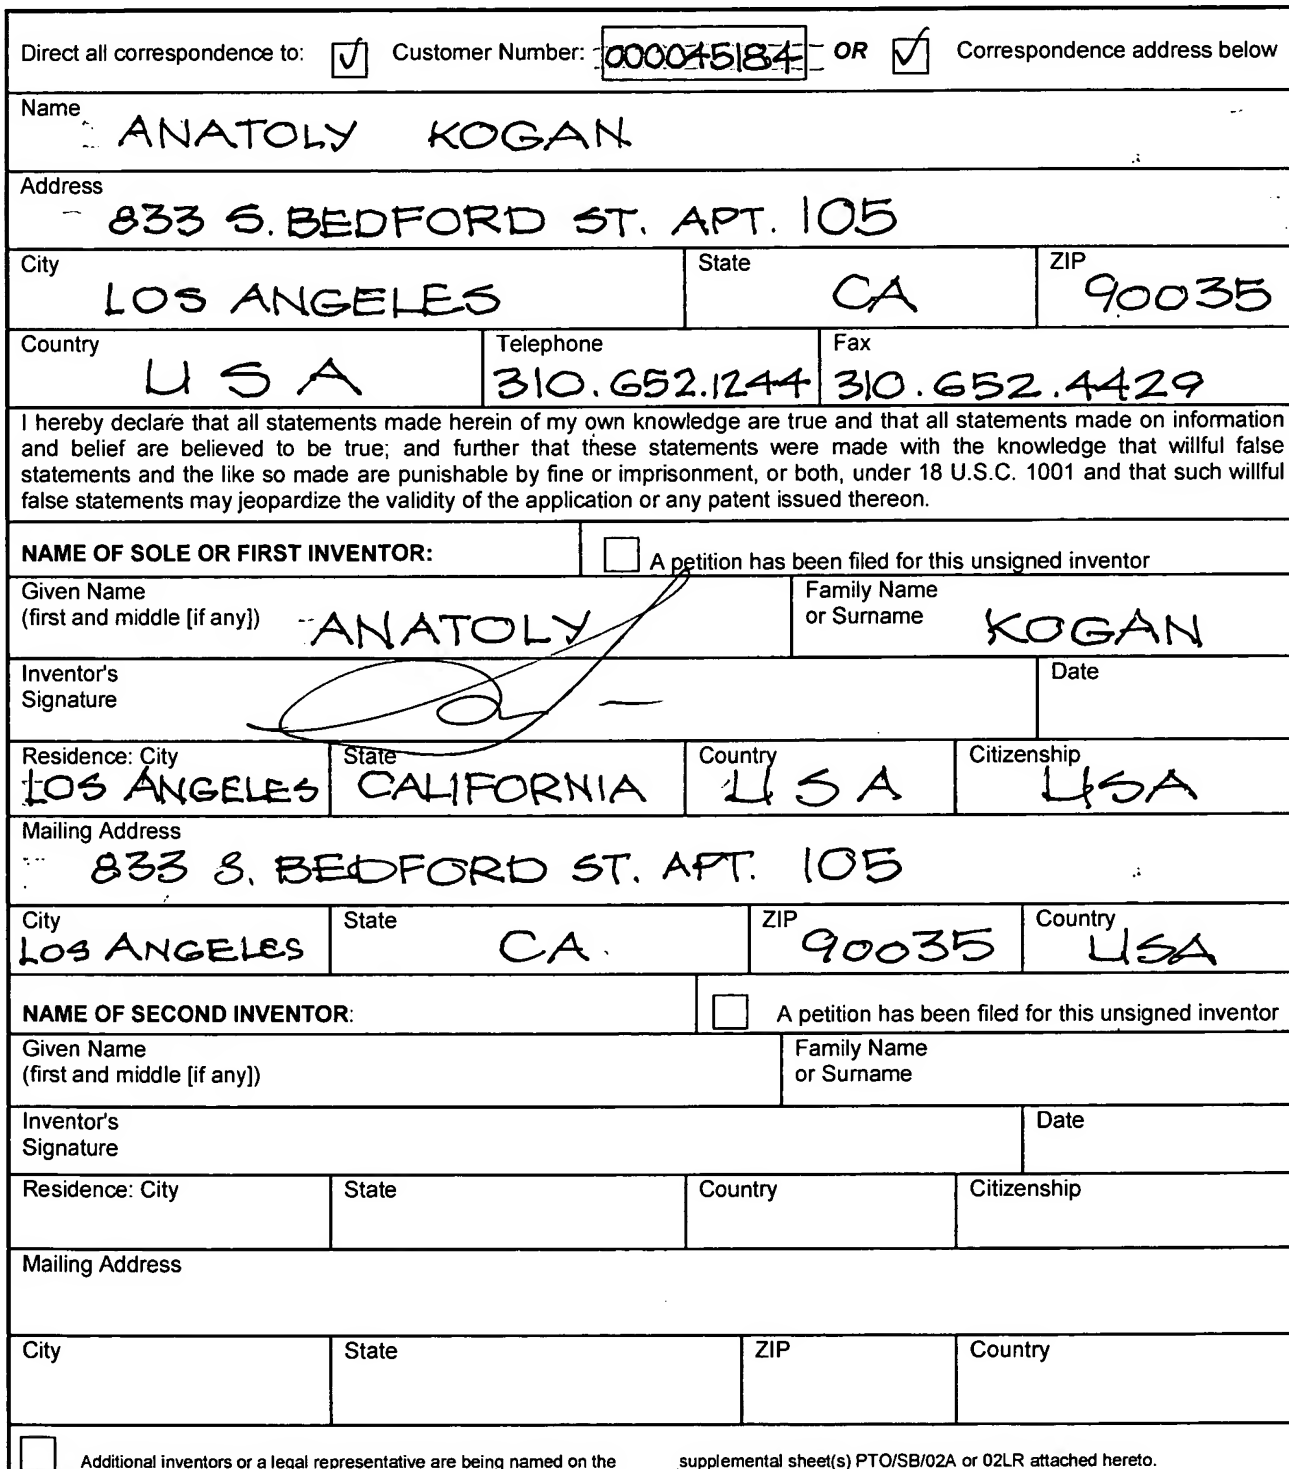 Direct all correspondence to: Customer Number: 000045184 OR Correspondence address below
Name
ANATOLY KOGAN
Address
833 S. BEDFORD ST. APT. 105
City State ZIP
LOS ANGELES CA 90035
Country Telephone Fax
USA 310.652.1244 310.652.4429
I hereby declare that all statements made herein of my own knowledge are true and that all statements made on information
and belief are believed to be true; and further that these statements were made with the knowledge that willful false
statements and the like so made are punishable by fine or imprisonment, or both, under 18 U.S.C. 1001 and that such willful
false statements may jeopardize the validity of the application or any patent issued thereon.
NAME OF SOLE OR FIRST INVENTOR: A petition has been filed for this unsigned inventor
Given Name Family Name
(first and middle [if any]) ANATOLY or Surname KOGAN
Inventor's Date
Signature
Residence: City State Country Citizenship
LOS ANGELES CALIFORNIA USA USA
Mailing Address
833 S. BEDFORD ST. APT. 105
City State ZIP Country
LOS ANGELES CA. 90035 USA
NAME OF SECOND INVENTOR: A petition has been filed for this unsigned inventor
Given Name Family Name
(first and middle [if any]) or Surname
Inventor's Date
Signature
Residence: City State Country Citizenship
Mailing Address
City State ZIP Country
Additional inventors or a legal representative are being named on the supplemental sheet(s) PTO/SB/02A or 02LR attached hereto.